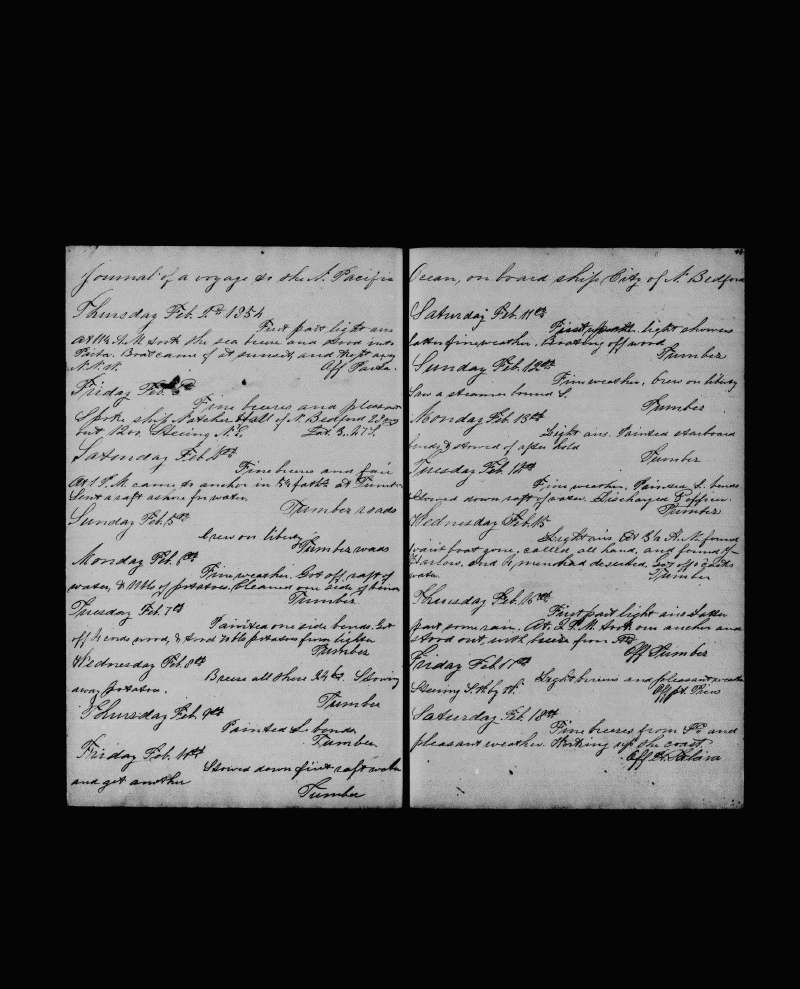 Journal of a voyage to the N. Pacific
Thursday Feb. 2nd 1854
First part light airs
At 11½ A.M. took the sea breeze and stood into
Paita. Boat came of at sunset, and kept away
N.N.W. Off Paita.
Friday Feb.
Fine breezes and pleasant
Spoke ship Natchez Hall of N. Bedford
out 1200 Steering N.E. Lat. 3.27 S.
Saturday Feb 4th
Fine breezes and fair
At 1 P.M. came to anchor in 5½ faths at Tumber
Sent a raft ashore for water.
Tumber roads
Sunday Feb. 5th
Crew on liberty
Tumber roads
Monday Feb. 6th
Fine weather. Got off raft of
water, & of potatoes. Cleaned one side of
Tumber
Tuesday Feb. 7th
Painted one side bends. Got
off wood, & stored potatoes from lighter
Tumber
Wednesday Feb. 8th
Breeze all these 24 hs. Stowing
away potatoes.
Tumber
Thursday Feb. 9th
Painted L. bends
Tumber
Friday Feb. 10th
Stowed down first raft water
and got another
Tumber
Ocean, on board ship, City of N. Bedford
Saturday Feb. 11th
First part light showers
latter fine weather. Boating off wood
Tumber
Sunday Feb. 12th
Fine weather, Crew on liberty
Saw a steamer bound S.
Tumber
Monday Feb 13th
Light airs. Painted starboard
bends & stowed of after hold
Tumber
Tuesday Feb. 14th
Fine weather. Painted L. bends
Stowed down raft of water. Discharged officer.
Tumber
Wednesday Feb. 15
Light airs At 3½ A.M. found
waist boat gone, called all hand, and found
and 4 men had deserted. Got off
water. Tumber
Thursday Feb. 16th
First part light airs Latter
part some rain. At 2 P.M. took our anchor and
stood out, with breeze from
Off Tumber
Friday Feb 17th
Light breezes and pleasant weather
Steering S.W. by W. Off
Saturday Feb. 18th
Fine breezes from and
pleasant weather. Working up the coast
Off